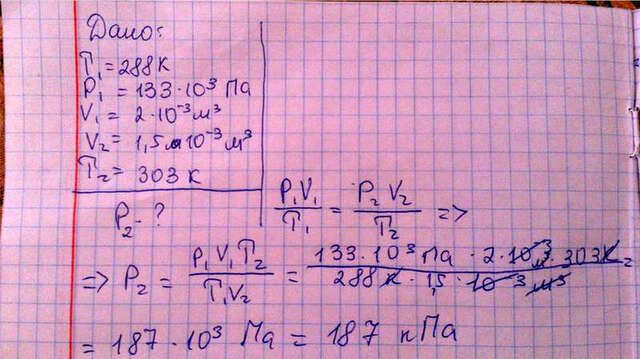 Дано:
T₁ = 288 К
P₁ = 133 · 10³ Па
V₁ = 2 · 10⁻³ м³
V₂ = 1,5 · 10⁻³ м³
T₂ = 303 К
P₂ - ?
P₁V₁/T₁ = P₂V₂/T₂ =>
=> P₂ = P₁V₁T₂/T₁V₂ = 133 · 10³ Па · 2 · 10⁻³ м · 303К / 288 К · 1,5 · 10⁻³ м³ =
= 187 · 10³ Па = 187 кПа